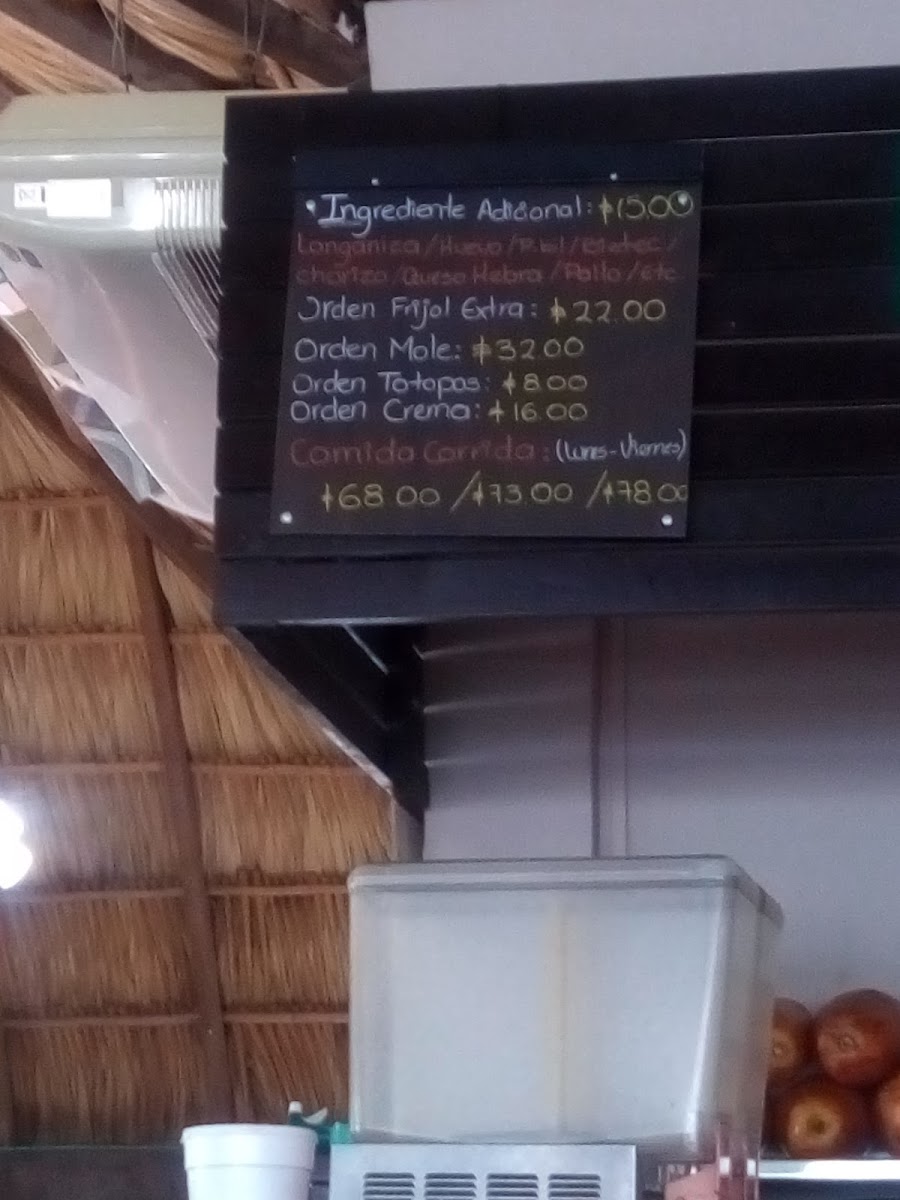 Ingrediente Adicional: $15.00
Longaniza/Huevo/ /Bistec/
chorizo/Queso Hebra/Pollo/etc
Orden Frijol Extra: $22.00
Orden Mole: $32.00
Orden Totopos: $8.00
Orden Crema: $16.00
Comida Corrida: (Lunes-Viernes)
$68.00/$73.00/$78.00